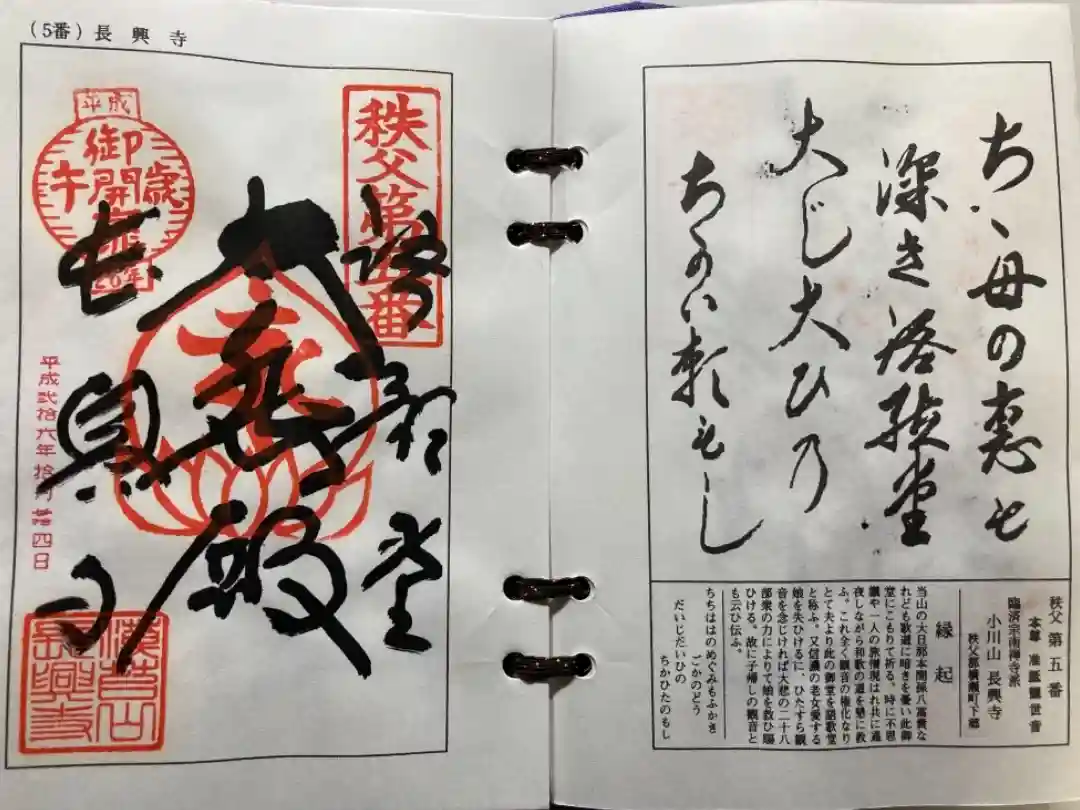 (5番) 長興寺
平成
御開帳
午歳
26年
秩父第五番
語歌堂
大悲殿
長興寺
平成弐拾六年拾月廿四日
長興寺
ちゝ母の恵も
深き語歌堂
大じ大ひの
ちかひ頼もし
秩父第五番
本尊 准胝観世音
臨済宗南禅寺派
小川山 長興寺
秩父郡横瀬町下郷
縁起
当山の大旦那本間孫八富貴な
れども歌道に暗きを憂い此御
堂にこもりて祈る。時に不思
議や一人の旅僧現はれ共に通
夜しながら和歌の道を懇に教
ふ。これ全く観音の権化なり
とて夫より此の御堂を語歌堂
と称ふ。又信濃の老女愛する
娘を失ひけるに、ひたすら観
音を念じければ大悲の二十八
部衆の力によりて娘を救ひ賜
ひける。故に子帰しの観音と
も云ひ伝ふ。
ちちははのめぐみもふかき
ごかのどう
だいじだいひの
ちかひたのもし